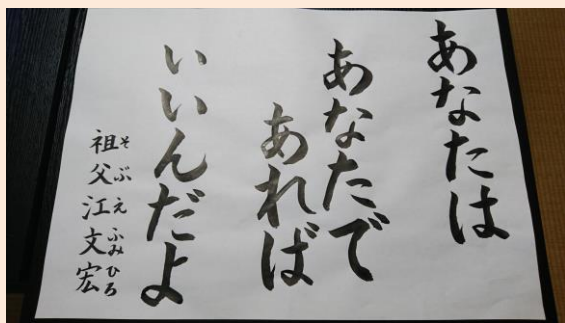 あなたは
あなたで
あれば
いいんだよ
祖父江文宏
そぶえふみひろ